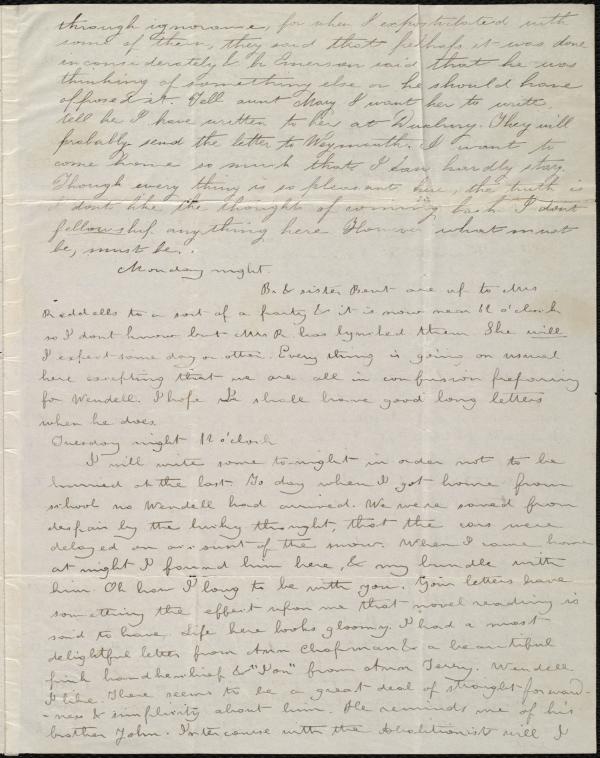 through ignorance, for when I expostulated with
some of them, they said that perhaps it was done
inconsiderately & Mr Emerson said that he was
thinking of something else or he should have
opposed it. Tell aunt Mary I want her to write,
tell he I have written to her at Duxbury. They will
probably send the letter to Weymouth. I want to
come home so much that I can hardly stay
Though every thing is so pleasant here, the truth is
I dont like the thoughts of coming back I dont
fellowship anything here However what must
be, must be.
Monday night.
Br. & sister Bent are up to Mrs
Reddells to a sort of a party & it is now near 11 o'clock
so I dont know but Mrs R. has lynched them. She will
I expect some day or other. Every thing is going on usual
here excepting that we are all in confusion preparing
for Wendell. I hope I shall have good long letters
when he does.
Tuesday night 11 o'clock
I will write some to-night in order not to be
hurried at the last. To day when I got home from
school no Wendell had arrived. We were saved from
despair by the lucky thought, that the cars were
delayed on account of the snow. When I came home
at night I found him here, & my bundle with
him. Oh how I long to be with you. Your letters have
something the effect upon me that novel reading is
said to have. Life here looks gloomy. I had a most
delightful letter from Ann Chapman & a beautiful
pink handkerchief & "Ion" from Anna Terry. Wendell
I like. There seems to be a great deal of straight forward-
-ness & simplicity about him. He reminds me of his
brother John. Intercourse with the Abolitionist will I